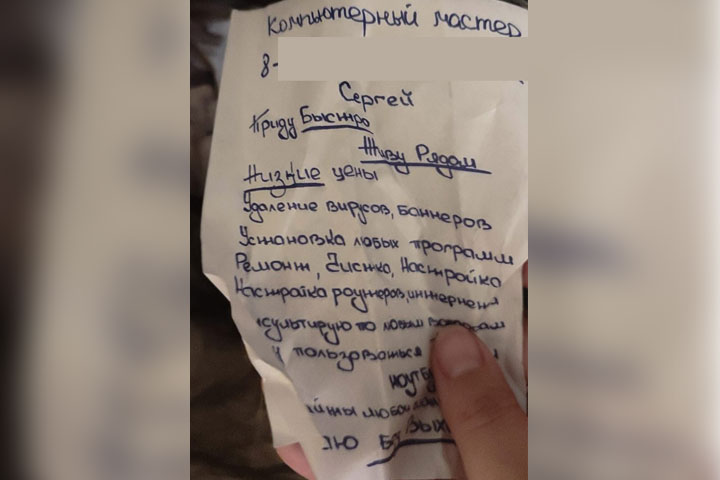 Компьютерный мастер
8-
Сергей
Приду Быстро
Живу Рядом
Низние цены
Удаление вирусов, баннеров
Установка любых программ
Ремонт, Чистка, Настройка
Настройка роутеров, интернет
сультирую по любым
пользоваться
ноутб
любой
Ю